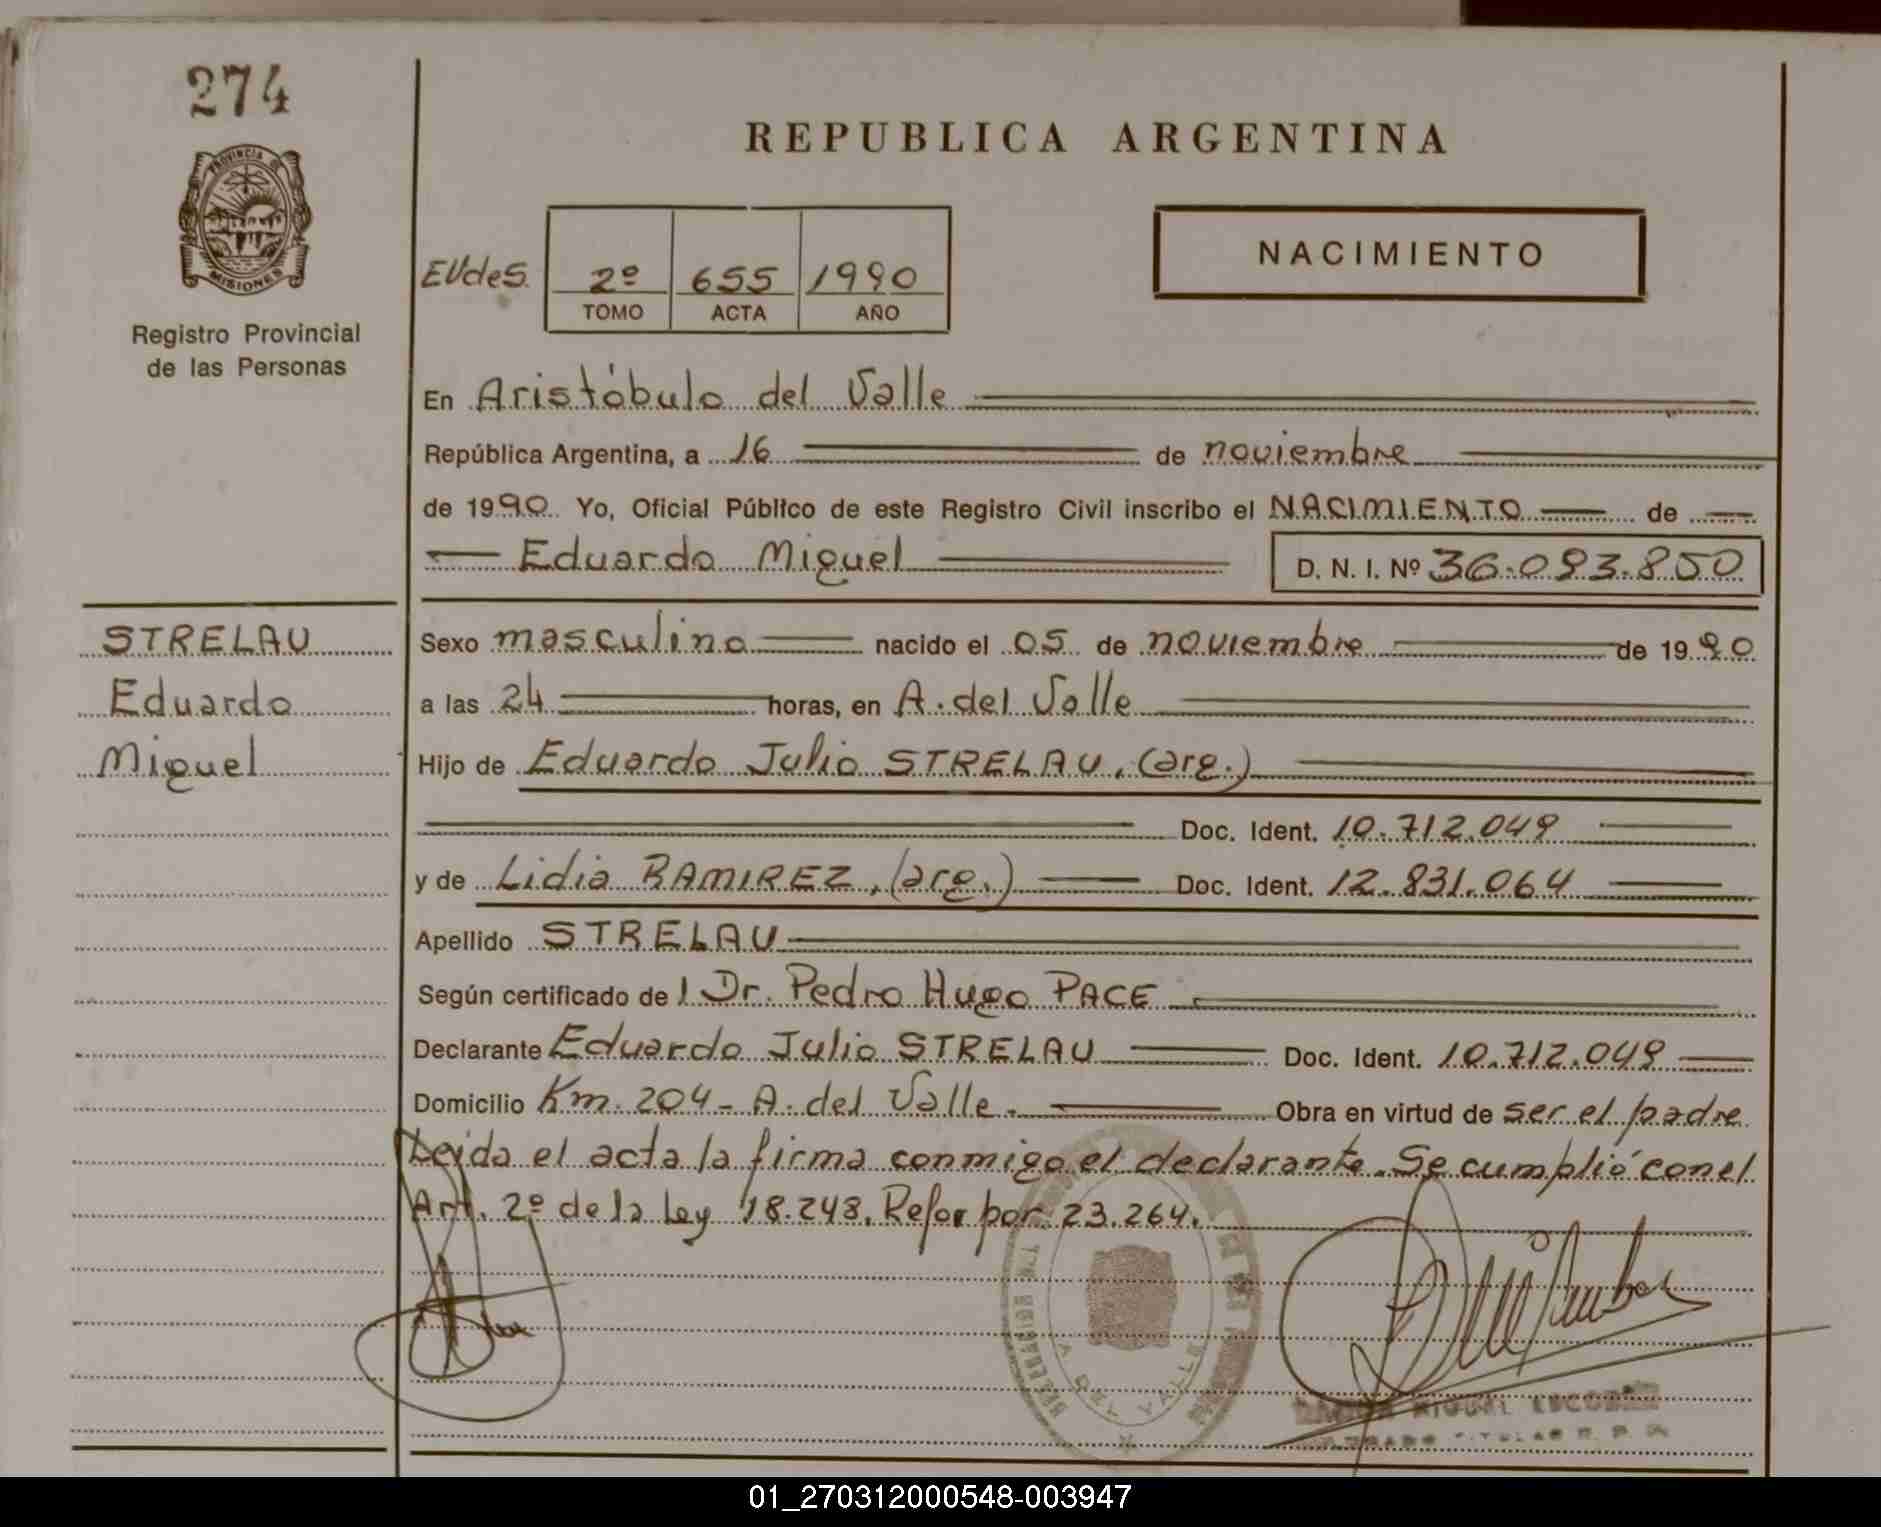 274
PROVINCIA DE
MISIONES
Registro Provincial
de las Personas
REPUBLICA ARGENTINA
EVdes. 2º 655 1990
TOMO ACTA AÑO
NACIMIENTO
En Aristóbulo del Valle
República Argentina, a 16 de noviembre
de 1990. Yo, Oficial Público de este Registro Civil inscribo el NACIMIENTO de
Eduardo Miguel D. N. I. Nº 36.093.850
STRELAU
Eduardo
Miguel
Sexo masculino nacido el 05 de noviembre de 1990
a las 24 horas, en A. del Valle
Hijo de Eduardo Julio STRELAU, (arg.)
Doc. Ident. 10.712.049
y de Lidia RAMIREZ, (arg.) Doc. Ident. 12.831.064
Apellido STRELAU
Según certificado de l Dr. Pedro Hugo PACE
Declarante Eduardo Julio STRELAU Doc. Ident. 10.712.049
Domicilio Km. 204 - A. del Valle. Obra en virtud de ser el padre
Leida el acta la firma conmigo el declarante. Se cumplió con el
Art. 2º de la Ley 18.248. Refor por 23.264.
A. DEL VALLE
MIGUEL ESCOBAR
01_270312000548-003947